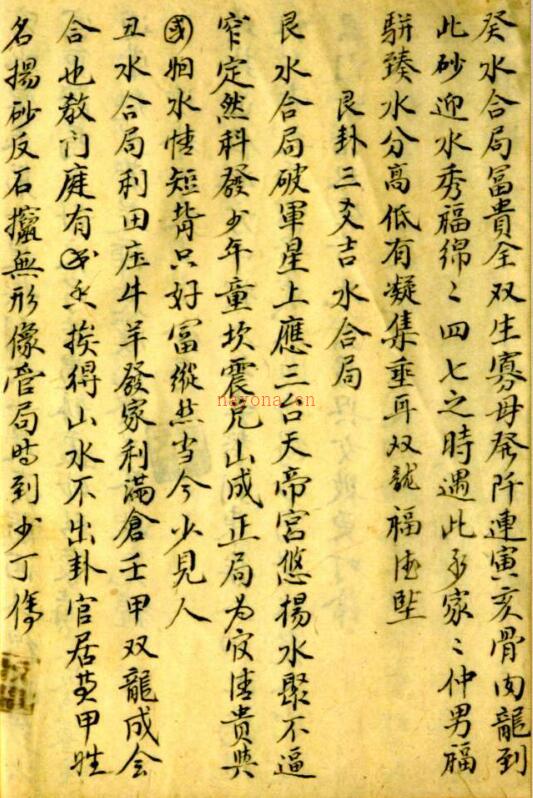 癸水合局冨貴全双生寡母發阡連寅亥骨肉龍到
此砂迎水秀福綿〻四七之時遇此承家〻仲男福
駢臻水分高低有凝集垂耳双龍福徳墅
艮卦三爻吉水合局
艮水合局破軍星上應三台天帝宮悠揚水聚不逼
窄定然科發少年童坎震兑山成正局为官清貴英
國烟水情短背只好冨縱然当今少見人
丑水合局利田庄牛羊發家利滿倉壬甲双龍成会
合也教门庭有香挨得山水不出卦官居黄甲姓
名揚砂反石攛無形像管局時到少丁傷
nayona.cn